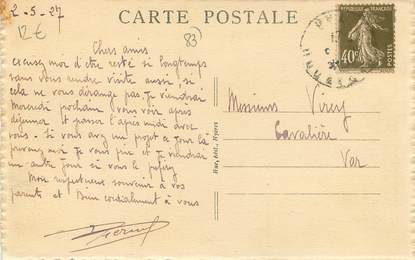 2-5-27
12€
CARTE POSTALE
83
Chers amis
excusez moi d'être resté si longtemps
sans vous rendre visite aussi, si
cela ne vous dérange pas je viendrai
Mercredi prochain vous voir après
déjeuner et passer l'après midi avec
vous. Si vous avez un projet ce jour là
prévenez moi je vous prie et je viendrai
un autre jour si vous le préférez
Mon respectueux souvenir à vos
parents et Bien cordialement à vous
Messieurs Virey
Cavalière
Var
RÉPUBLIQUE FRANÇAISE
40c
POSTES
Hyères